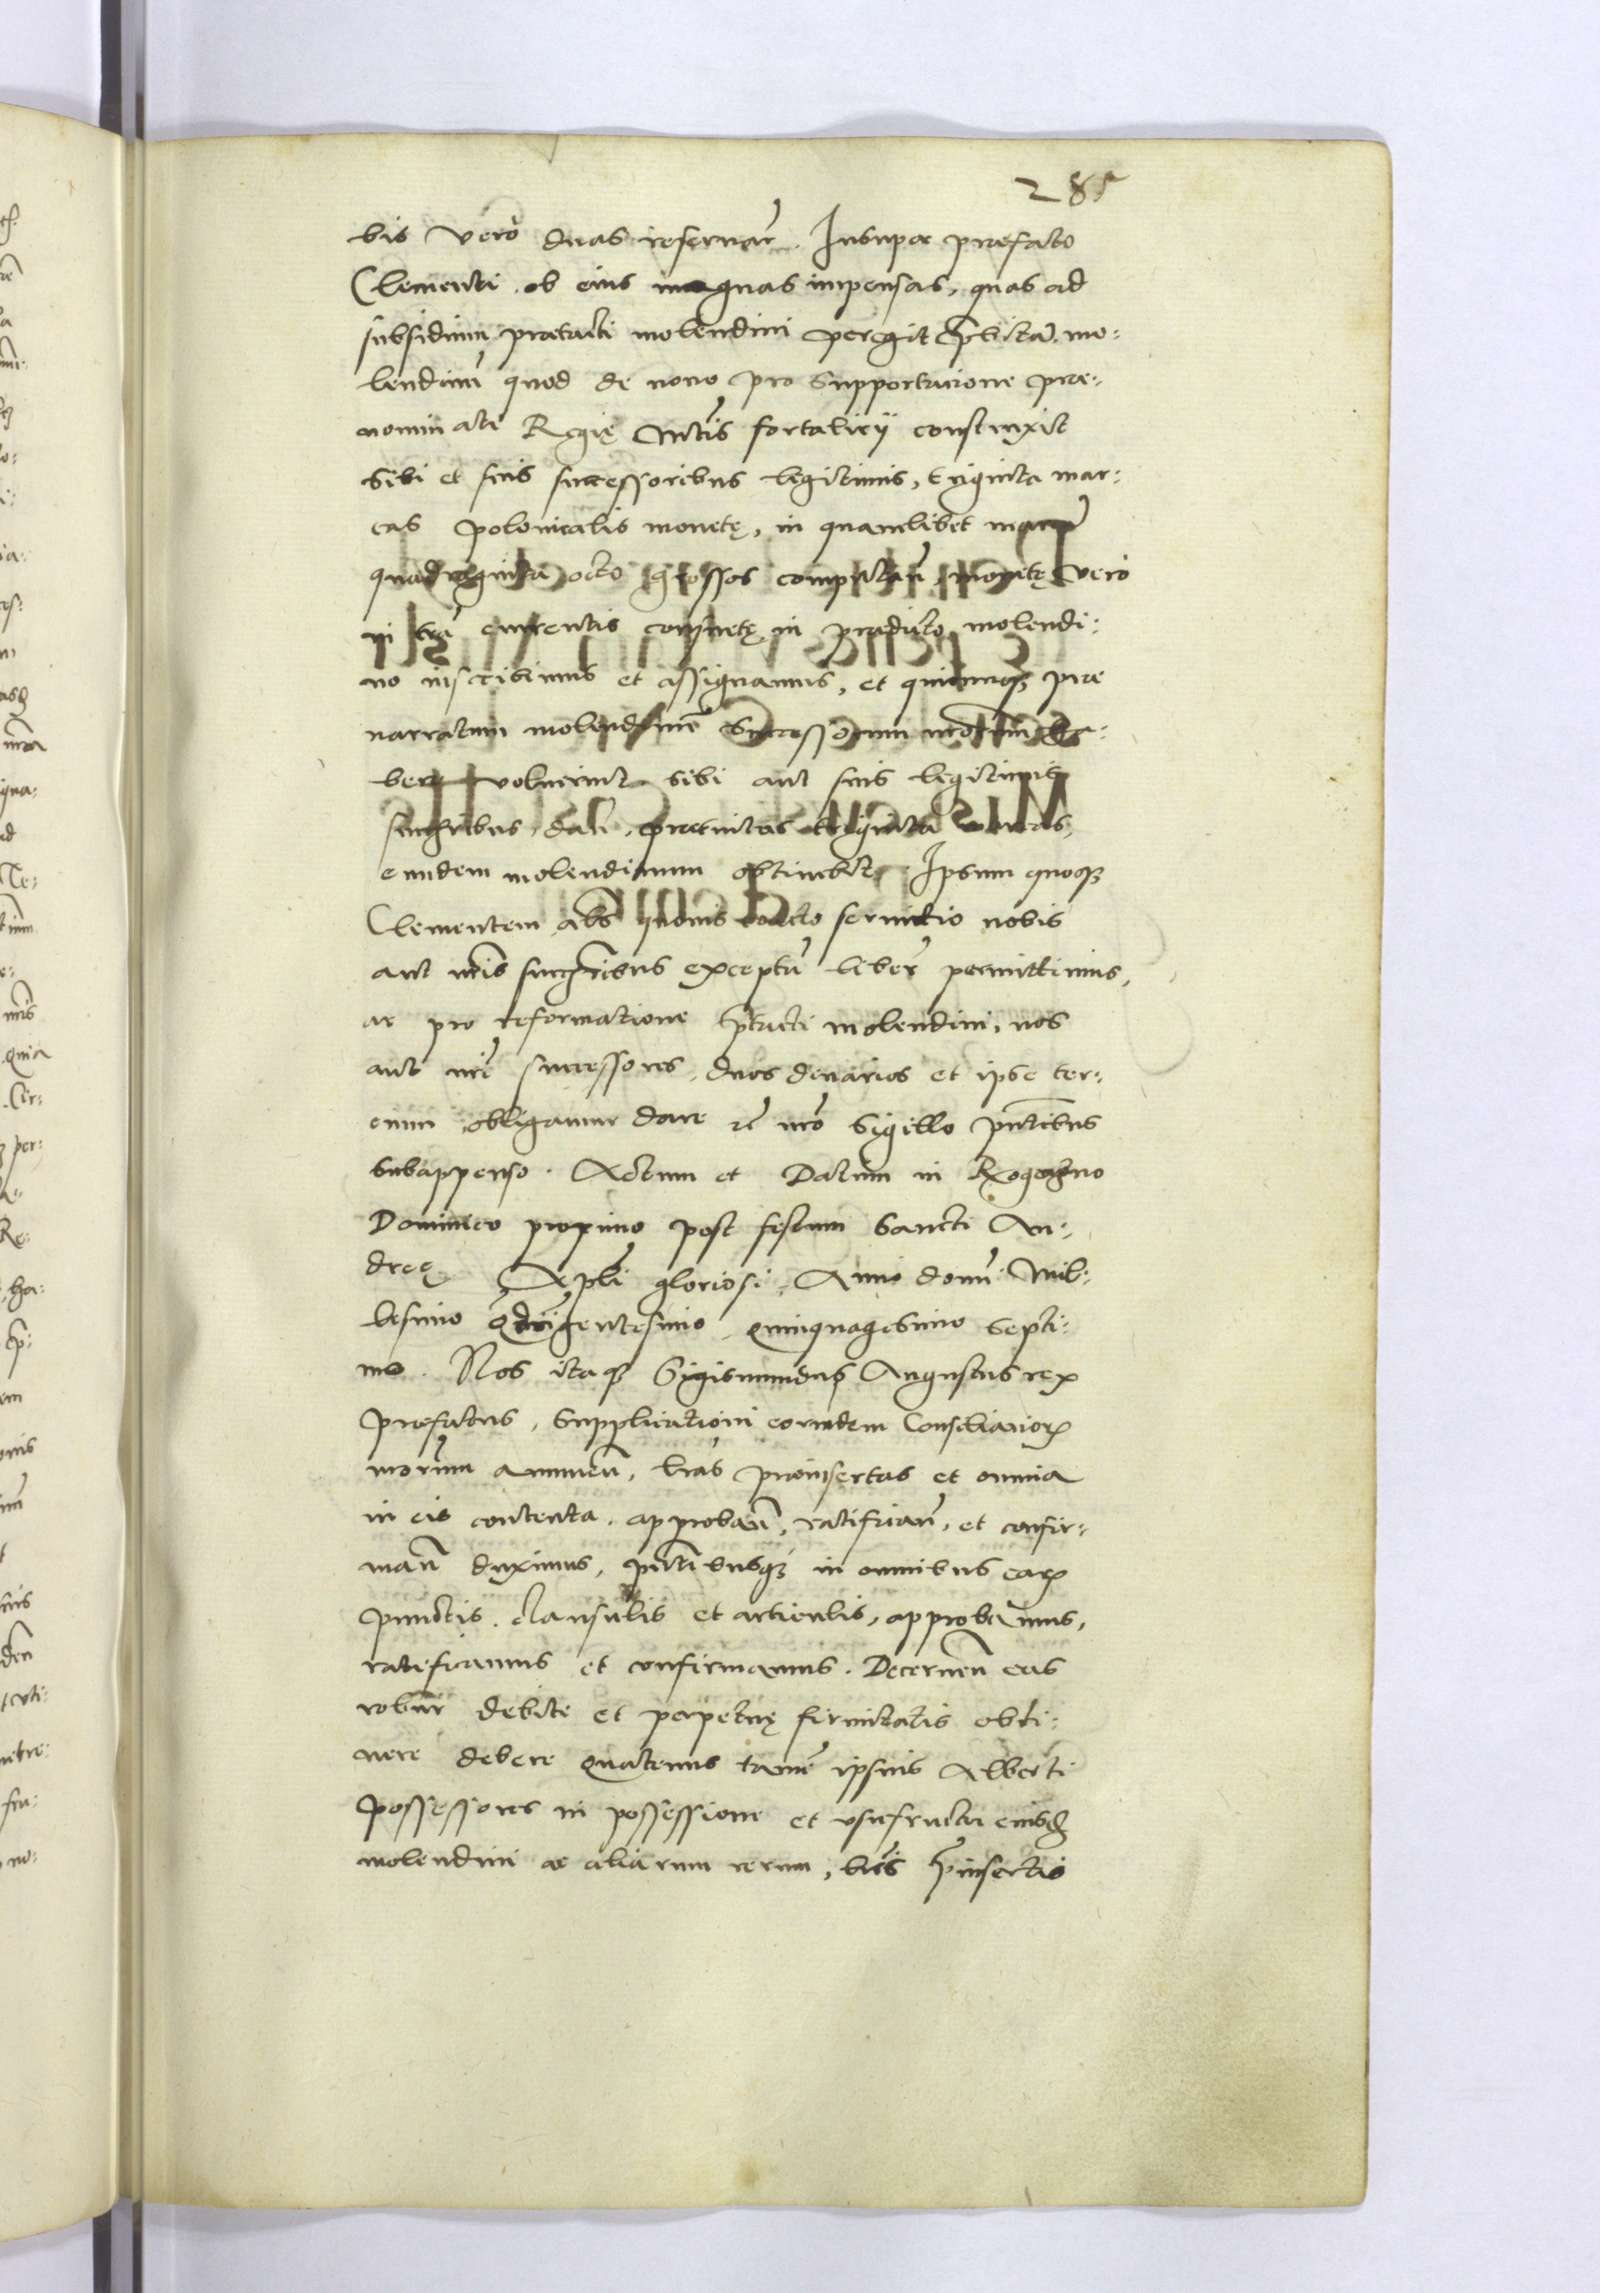 285
bis vero duas reservam̃. Insuper præfato
Clementi ob eius magnas impensas, quas ad
subsidium prætacti molendini peregit mo-
lendinũ quod de novo pro supportacione præ-
nominati Regię Mtis fortalicij construxit
sibi et suis successoribus legitimis, triginta mar-
cas polonicalis monetę, in quamlibet marcã
quadraginta octo grossos computañ, monetę vero
in currentis communetę in prædicto molendi-
no inscribimus et assignamus, et quicunq; præ
narratum molendinũ Successorum nrõrum ha-
bere voluerint sibi aut suis legitimis
succribus dañ præscriptas triginta marcas,
eundem molendinum obtinebit. Ipsum quoq;
Clementem abs servitio nobis
aut nris succribus exceptũ liberũ permittimus,
ac pro reformatione ptacti molendini, nos
aut nri successores, duos denarios et ipse ter-
cium obligamur dare et nrõ Sigillo pñtibus
subappenso. Actum et Datum in Rogozno
Dominico proximo post festum Sancti An-
dreę Apli gloriosi, Anno domĩ Mil-
lesimo Qdringentesimo quinquagesimo septi-
mo. Nos itaq; Sigismundus Augustus rex
præfatus, supplicationi eorundem Consiliarior
nrõrum annueñ, lras præinsertas et omnia
in eis contenta, approbañ, ratificañ, et confir-
mañ duximus, pñtibusq; in omnibus ear
punctis, clausulis et articulis, approbamus,
ratificamus et confirmamus. Decerneñ eas
robur debite et perpetuę firmitatis obti-
nere debere quatenus tamẽ ipsius Alberti
possessores in possessione et usufructu eiusd
molendini ac aliarum rerum, lris pinsertis